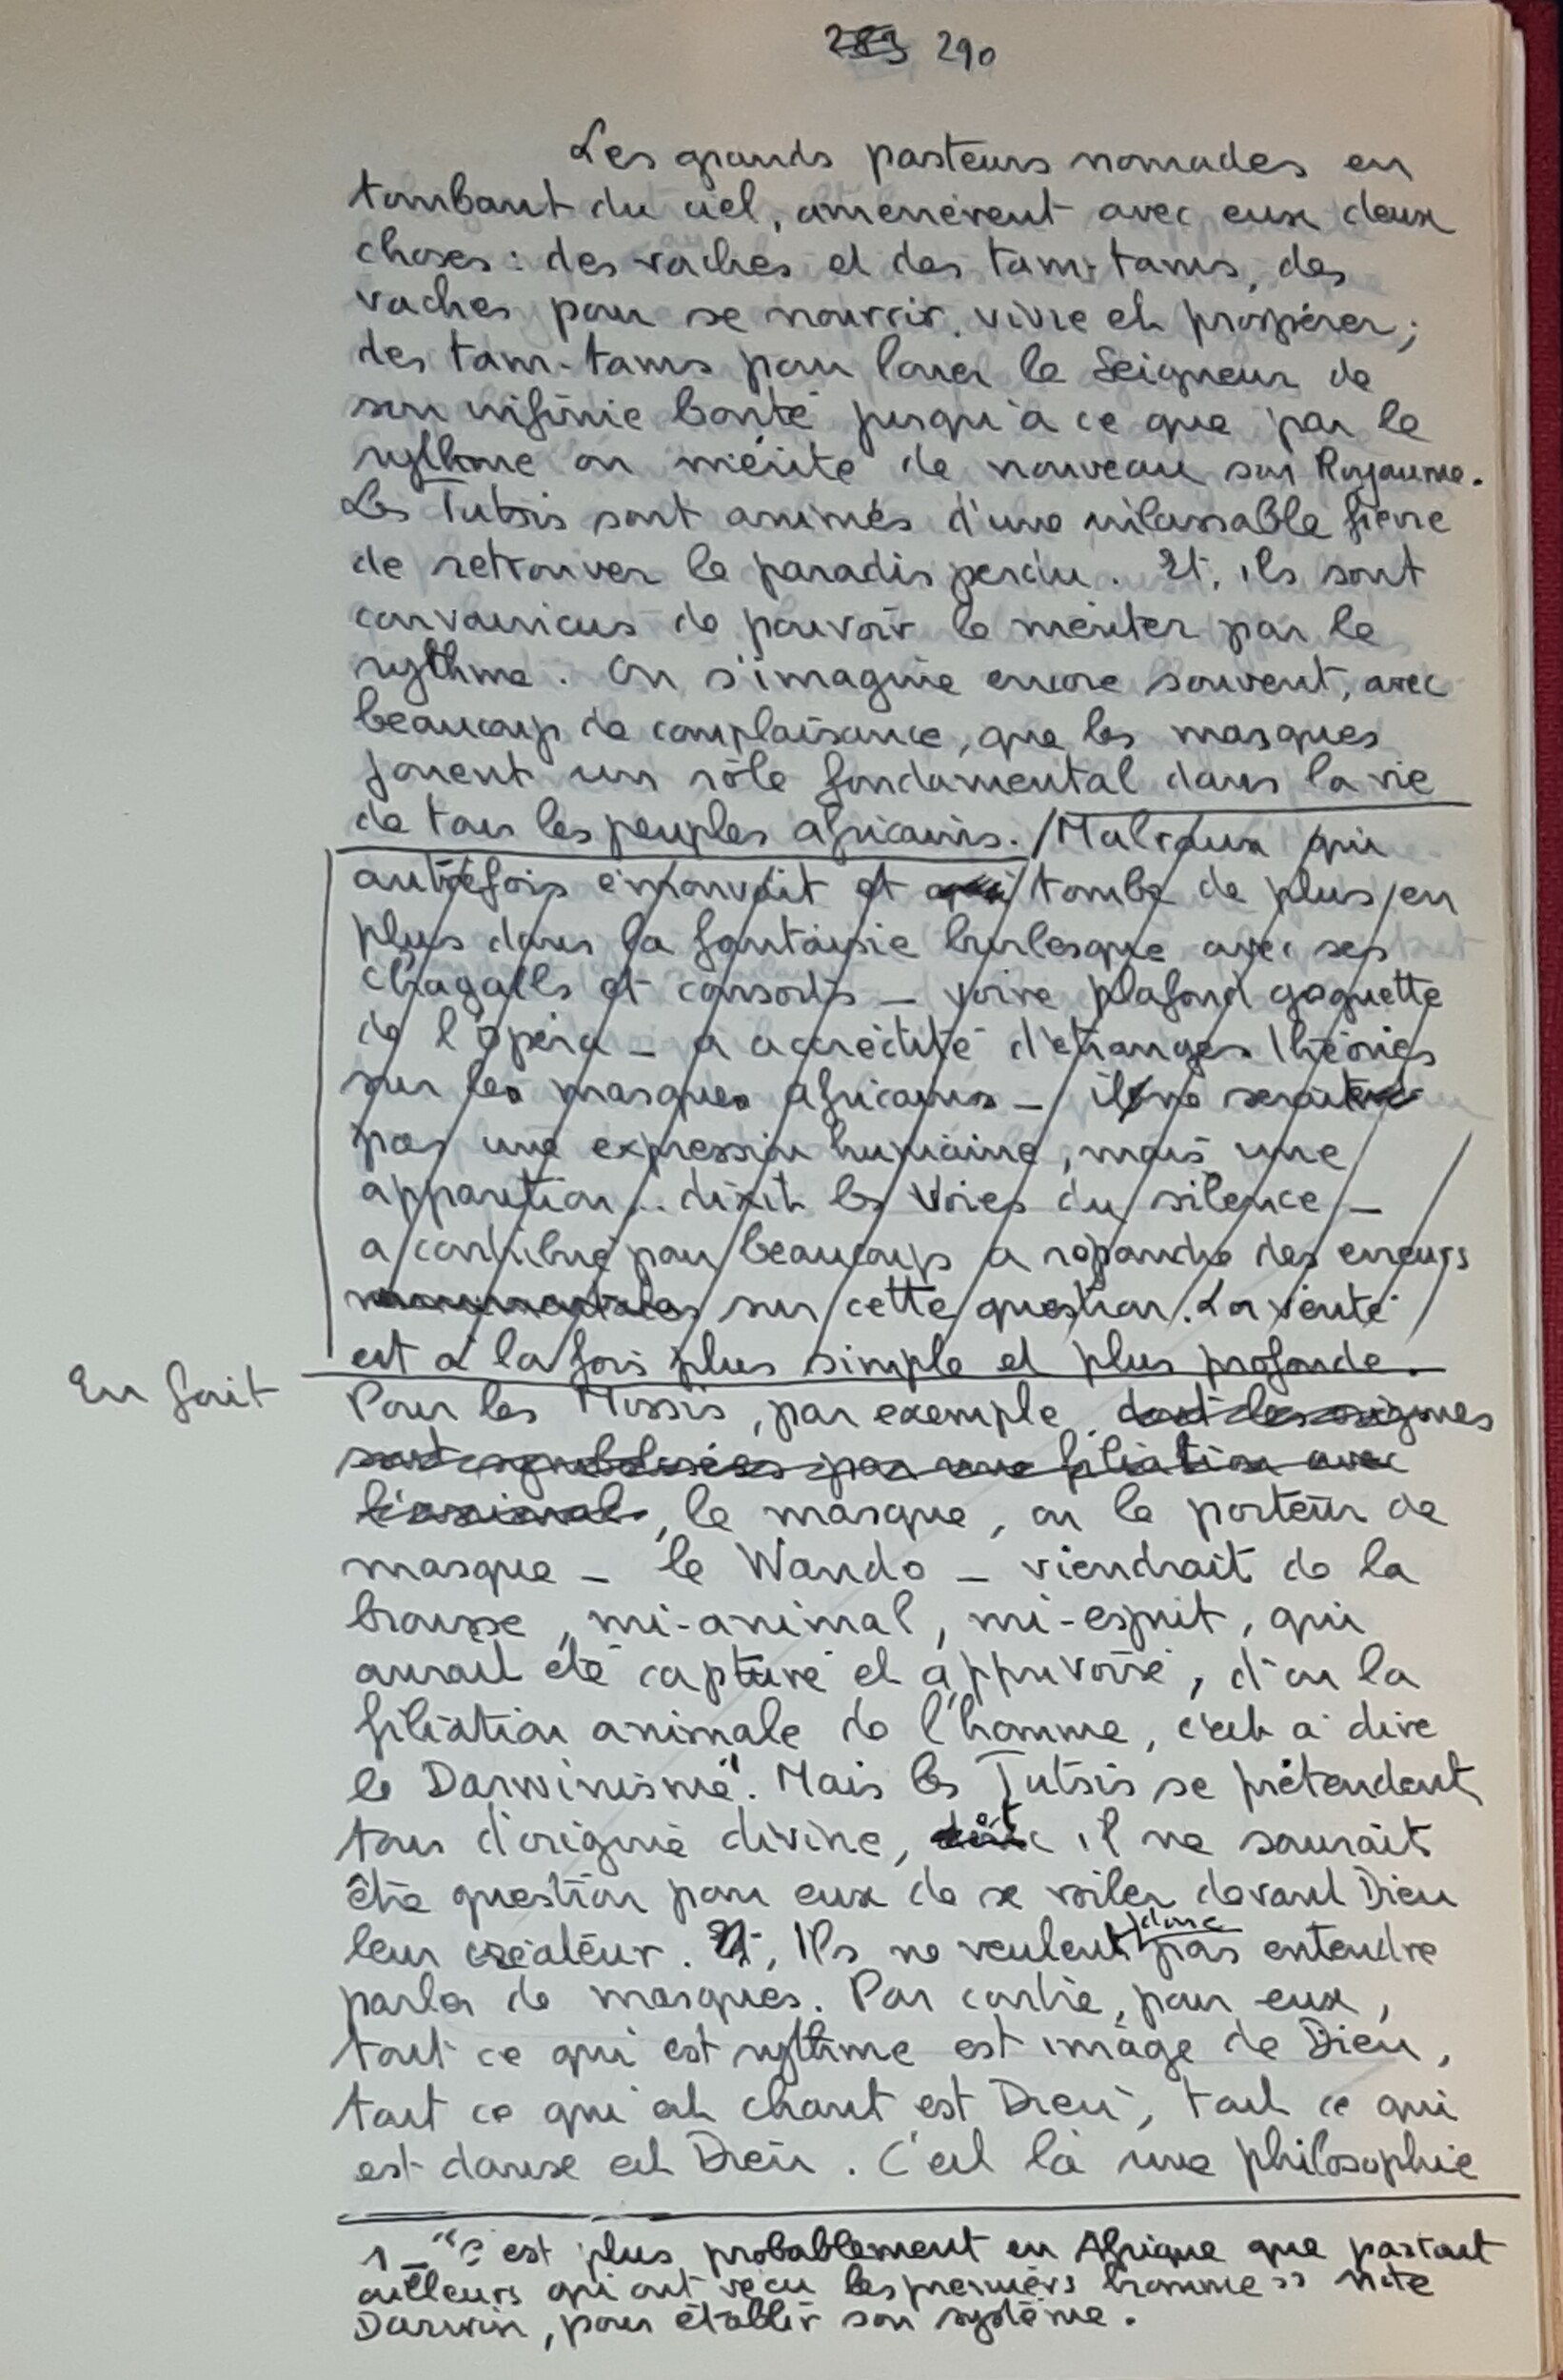 289 290
Les grands pasteurs nomades en
tombant du ciel, amenèrent avec eux deux
choses : des vaches et des tam-tams, des
vaches pour se nourrir, vivre et prospérer ;
des tam-tams pour louer le Seigneur de
son infinie bonté jusqu'à ce que par le
rythme on mérite de nouveau son Royaume.
Les Tutsis sont animés d'une inlassable fièvre
de retrouver le paradis perdu. Et, ils sont
convaincus de pouvoir le mériter par le
rythme. On s'imagine encore souvent, avec
beaucoup de complaisance, que les masques
jouent un rôle fondamental dans la vie
de tous les peuples africains. / Malraux qui
autrefois émouvait et qui tombe de plus en
plus dans la fantaisie burlesque avec ses
chagalls et consorts _ voire plafond goguette
de l'opéra _ a accrédité d'étranges théories
sur les masques africains _ il ne serait
pas une expression humaine, mais une
apparition... dixit les Voies du silence _
a contribué pour beaucoup a répandre des erreurs
monumentales sur cette question. La vérité
est à la fois plus simple et plus profonde.
En fait
Pour les Mossis, par exemple, dont les origines
sont symbolisées par une filiation avec
l'animal, le masque, ou le porteur de
masque _ le Wando _ viendrait de la
brousse, mi-animal, mi-esprit, qui
aurait été capturé et apprivoisé, d'ou la
filiation animale de l'homme, c'est à dire
le Darwinisme¹. Mais les Tutsis se prétendent
tous d'origine divine, et il ne saurait
être question pour eux de se voiler devant Dieu
leur créateur. Et, Ils ne veulent donc pas entendre
parler de masques. Par contre, pour eux,
tout ce qui est rythme est image de Dieu,
tout ce qui est chant est Dieu, tout ce qui
est danse est Dieu. C'est là une philosophie
1 _ "C'est plus probablement en Afrique que partout
ailleurs qui ont vécu les premiers hommes" note
Darwin, pour établir son système.